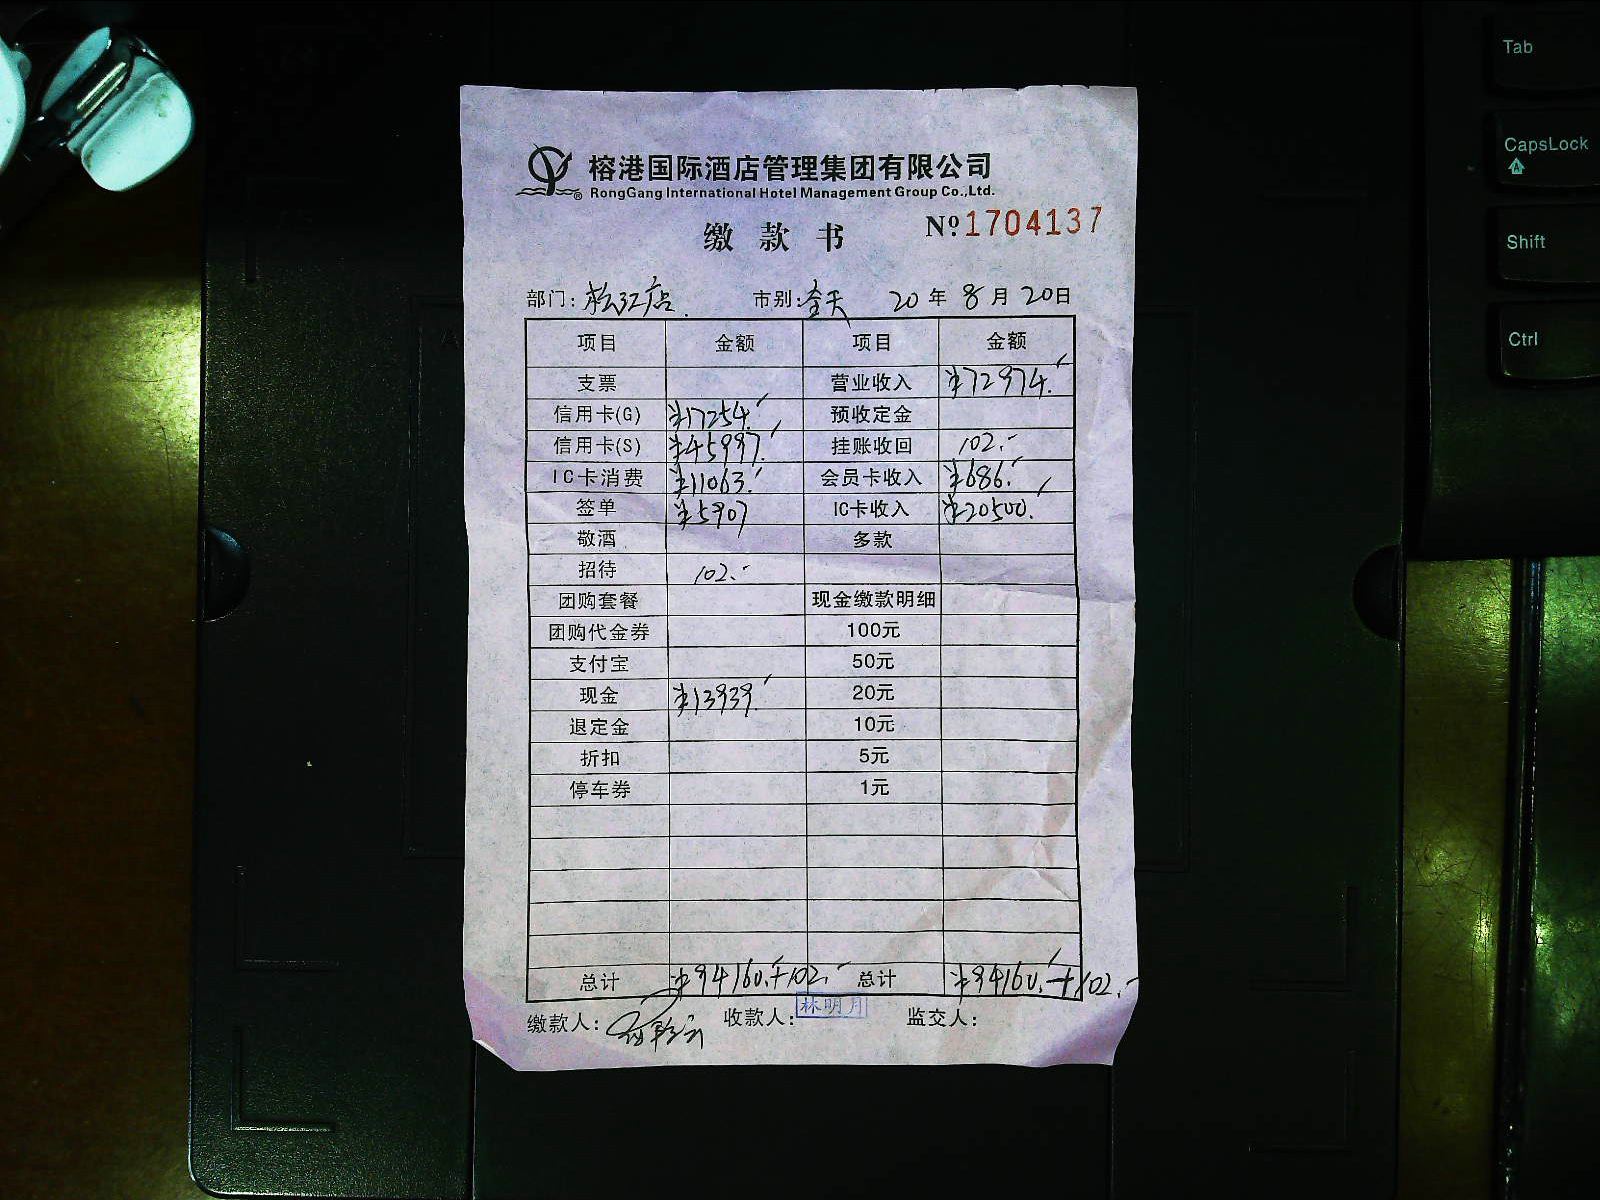 榕港国际酒店管理集团有限公司
®
RongGang International Hotel Management Group Co.,Ltd.
缴款书 Nº1704137
部门:松江店. 市别:全天 20年8月20日
项目 金额 项目 金额
支票 营业收入 ¥72974.
信用卡(G) ¥17254. 预收定金
信用卡(S) ¥45997. 挂账收回 102.-
IC卡消费 ¥11063. 会员卡收入 ¥686.
签单 ¥5907 IC卡收入 ¥20500.
敬酒 多款
招待 102.-
团购套餐 现金缴款明细
团购代金券 100元
支付宝 50元
现金 ¥13939. 20元
退定金 10元
折扣 5元
停车券 1元
总计 ¥94160.+102.- 总计 ¥94160.+102.-
缴款人: 收款人:林明月 监交人:
Tab
CapsLock
Shift
Ctrl